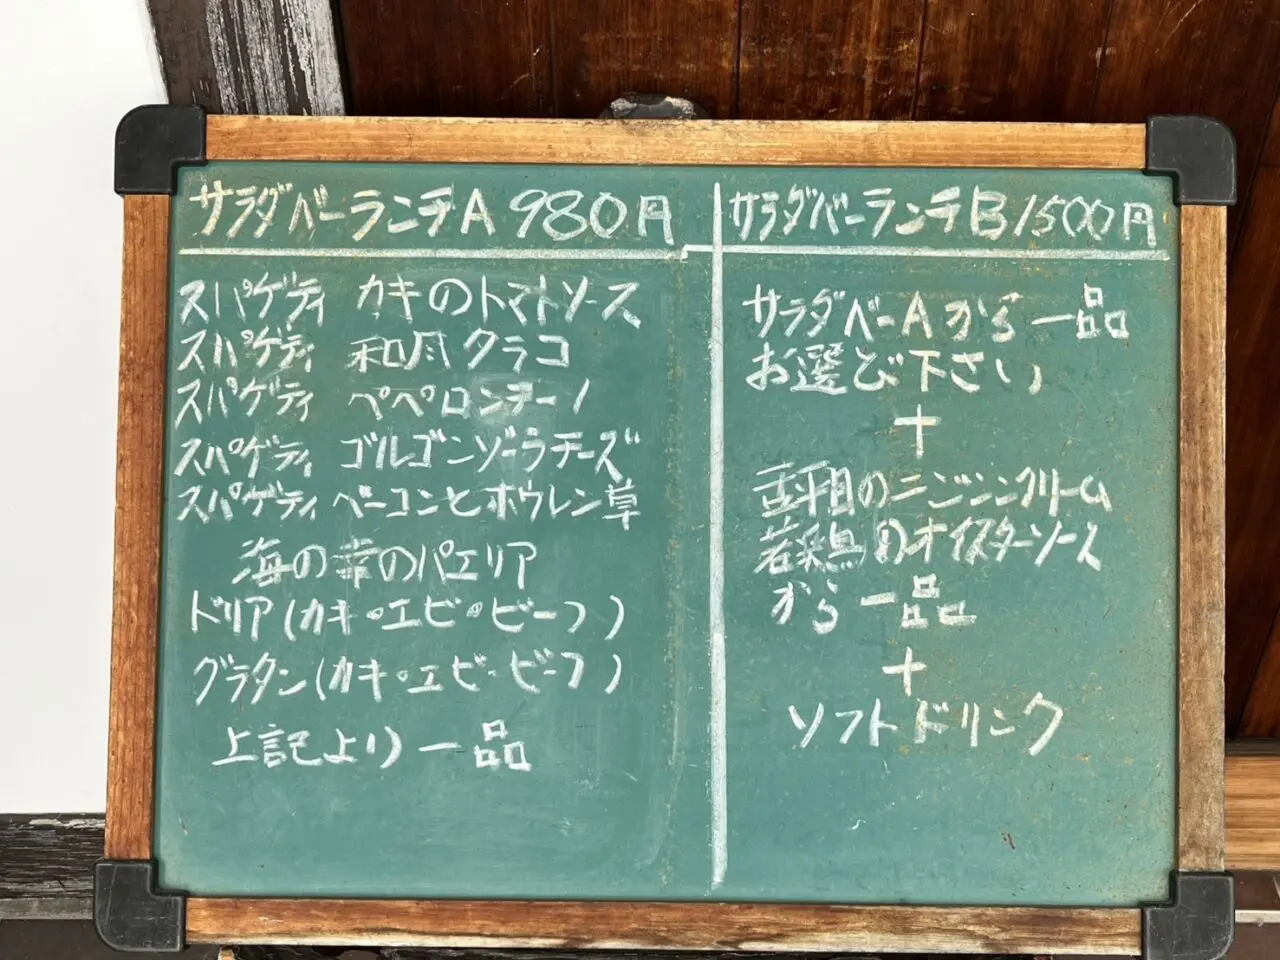 サラダバーランチA 980円
スパゲティ カキのトマトソース
スパゲティ 和風タラコ
スパゲティ ペペロンチーノ
スパゲティ ゴルゴンゾーラチーズ
スパゲティ ベーコンとホウレン草
海の幸のパエリア
ドリア(カキ・エビ・ビーフ)
グラタン(カキ・エビ・ビーフ)
上記より一品
サラダバーランチB 1500円
サラダバーAから一品
お選び下さい
+
舌平目のニンジンクリーム
若鶏のオイスターソース
から一品
+
ソフトドリンク